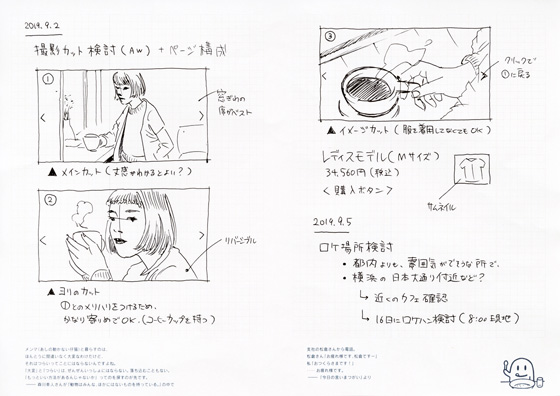 2019.9.2
撮影カット検討(AW)+ページ構成
①
窓ぎわの
席がベスト
▲メインカット(丈感がわかるとよい?)
②
リバーシブル
▲ヨリのカット
①とのメリハリをつけるため、
かなり寄りめでOK。(コーヒーカップを持つ)
③
クリックで
①に戻る
▲イメージカット(服を着用してなくてもOK)
レディスモデル(Mサイズ)
34,560円(税込)
<購入ボタン>
サムネイル
2019.9.5
ロケ場所検討
・都内よりも、雰囲気がでそうな所で。
・横浜の日本大通り付近など?
↳近くのカフェ確認
↳16日にロケハン検討(8:00現地)